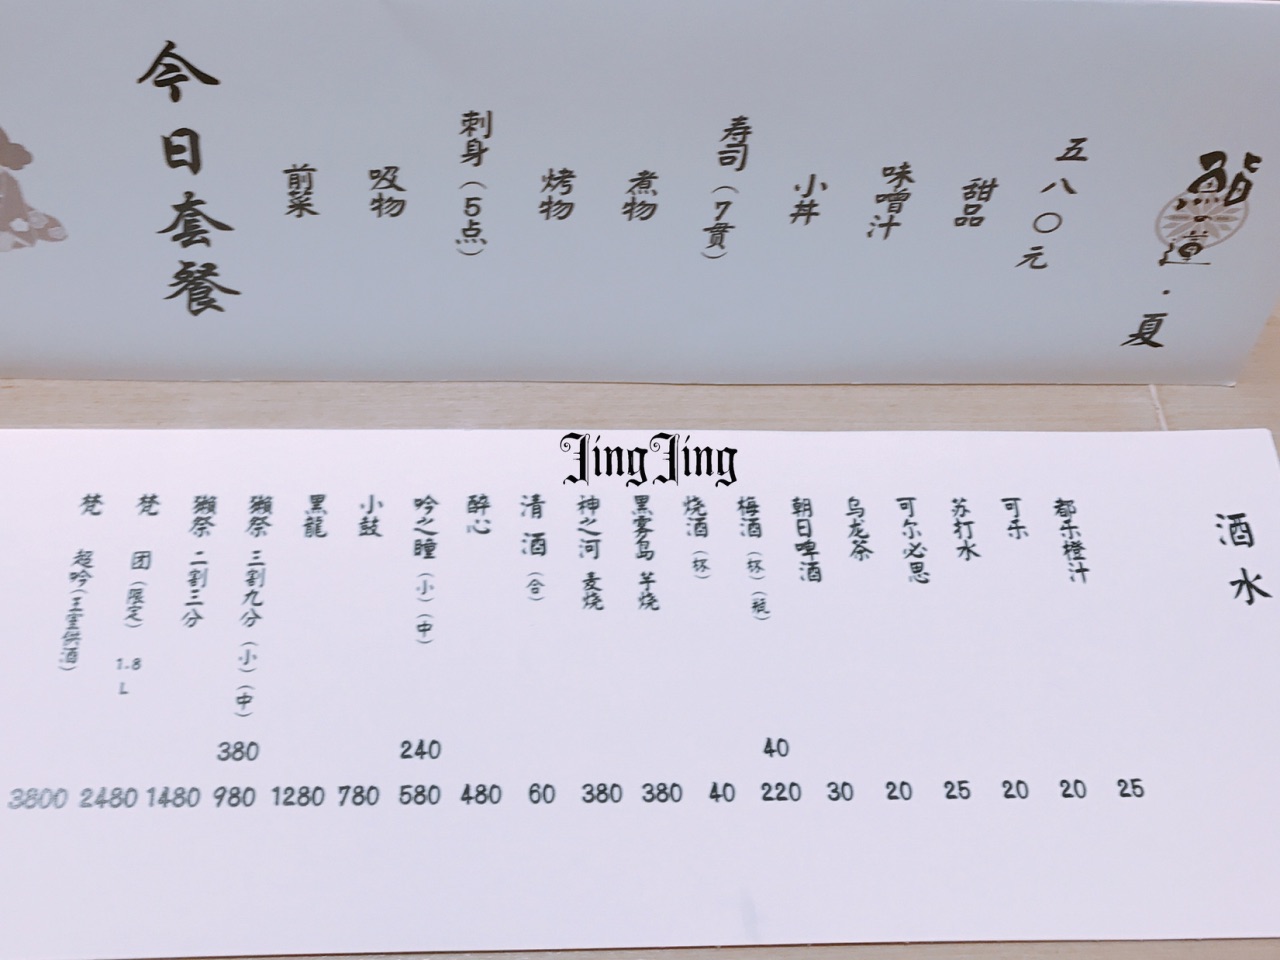 今日套餐
前菜
吸物
刺身（5点）
烤物
煮物
寿司（7貫）
小丼
味噌汁
甜品
五八〇元
鮨の道・夏
JingJing
酒水
都乐橙汁 25
可乐 20
苏打水 20
可尔必思 25
乌龙茶 20
朝日啤酒 30
梅酒（杯）（瓶） 40 220
烧酒（杯） 40
黑雾岛 芋烧 380
神之河 麦烧 380
清酒（合） 60
醉心 480
吟之瞳（小）（中） 240 580
小鼓 780
黑龍 1280
獭祭 三割九分（小）（中） 380 980
獭祭 二割三分 1480
梵 团（限定） 1.8L 2480
梵 超吟（王室供酒） 3800